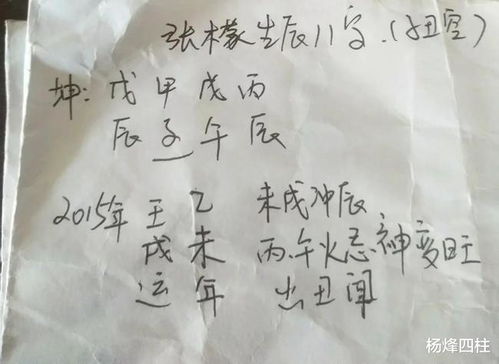 张檬生辰八字.(子丑空)
坤: 戊 甲 戊 丙
辰 子 午 辰
2015年 壬 乙 未戌冲辰,
戌 未 丙.午火忌神变旺
运 年 出丑闻
杨烽四柱